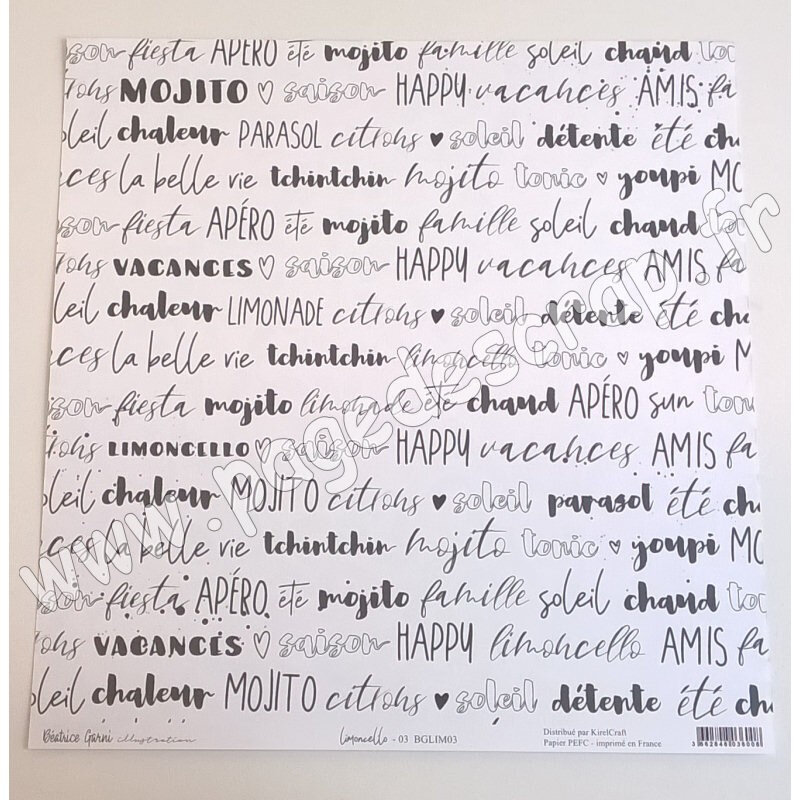 son fiesta APÉRO été mojito famille soleil chaud
MOJITO saison HAPPY vacances AMIS
chaleur PARASOL citrons soleil détente été
la belle vie tchintchin mojito tonic youpi MO
son fiesta APÉRO été mojito famille soleil chaud
VACANCES saison HAPPY vacances AMIS fa
chaleur LIMONADE citrons soleil détente été
la belle vie tchintchin limoncello tonic youpi M
fiesta mojito limonade été chaud APÉRO sun
LIMONCELLO saison HAPPY vacances AMIS fa
chaleur MOJITO citrons soleil parasol été
la belle vie tchintchin mojito tonic youpi MO
son fiesta APÉRO été mojito famille soleil chaud
VACANCES saison HAPPY limoncello AMIS fa
chaleur MOJITO citrons soleil détente été
Béatrice Garni illustration Limoncello - 03 BGLIM03 Distribué par KirelCraft
Papier PEFC - imprimé en France
www.pagedescrap.fr